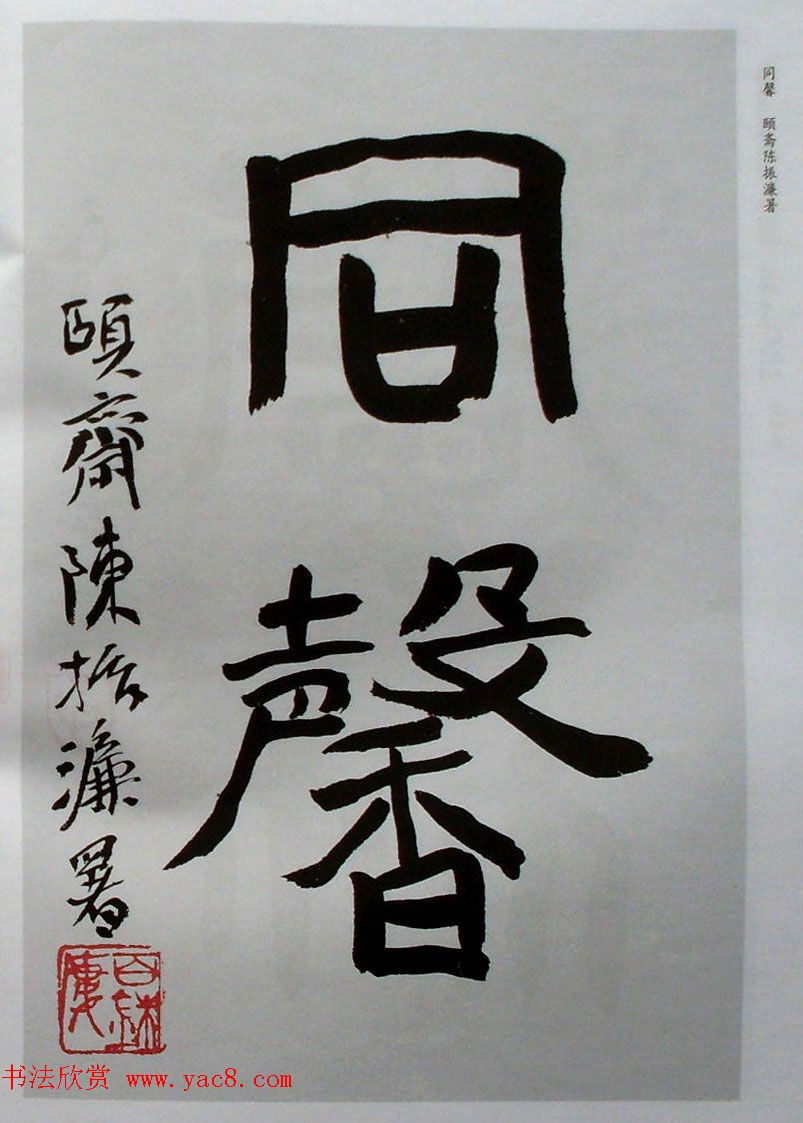 同馨 頤斋陈振濂署
同馨
頤齋陳振濂署
书法欣赏 www.yac8.com